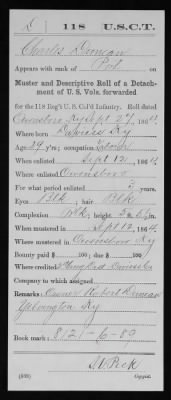 D | 118 | U.S.C.T.
Charles Duncan
Appears with rank of Pvt. on
Muster and Descriptive Roll of a Detachment
of U. S. Vols. forwarded
for the 118 Reg't U. S. Col'd Infantry. Roll dated
Owensboro Ky Sept 27, 1864.
Where born Daviess Ky
Age 29 y'rs; occupation Laborer
When enlisted Sept 12, 1864.
Where enlisted Owensboro
For what period enlisted 3 years.
Eyes Blk; hair Blk
Complexion Blk; height 5 ft. in.
When mustered in Sept 12, 1864.
Where mustered in Owensboro Ky
Bounty paid $ 100; due $ 100
Where credited
Company to which assigned
Remarks: Owner Robert Duncan
Yelvington Ky
Book mark: 8121-6-09
Copyist.